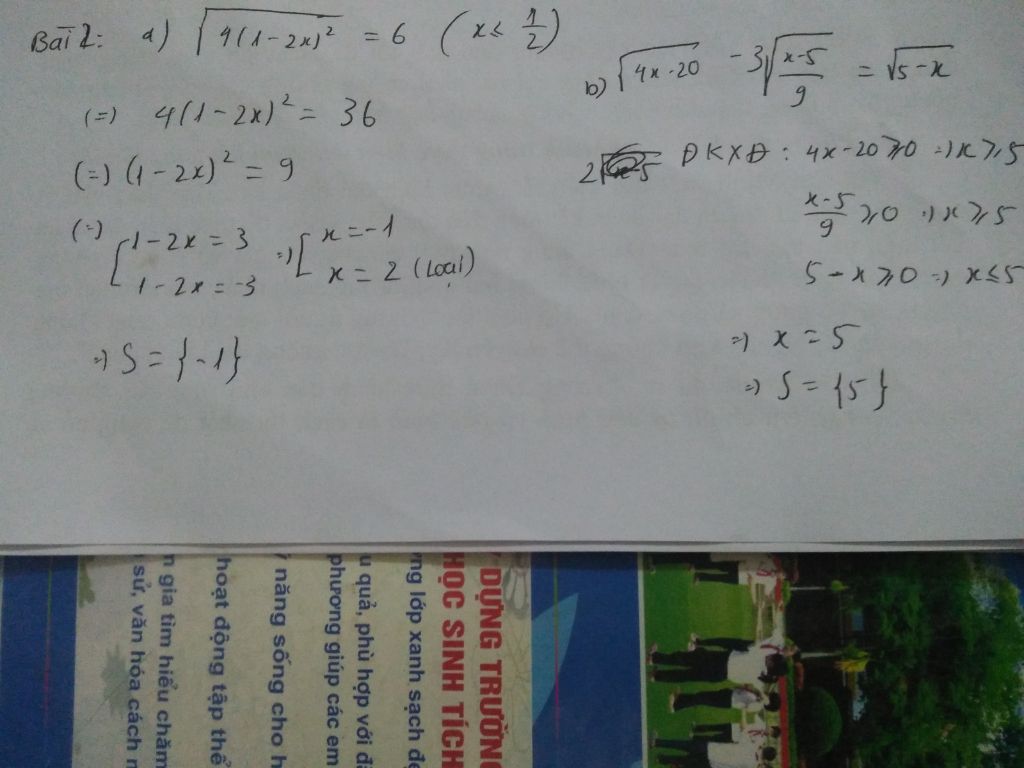 Bài 2: a) √4(1-2x)² = 6 (x ≤ 1/2)
(=) 4(1-2x)² = 36
(=) (1-2x)² = 9
(=) [1-2x = 3 =) [x = -1
1-2x = -3 x = 2 (loại)
=) S = {-1}
b) √4x-20 - 3√(x-5)/9 = √5-x
ĐKXĐ: 4x-20 ≥ 0 =) x ≥ 5
(x-5)/9 ≥ 0 =) x ≥ 5
5-x ≥ 0 =) x ≤ 5
=) x = 5
=) S = {5}
DỰNG TRƯỜNG
HỌC SINH TÍCH
ng lớp xanh sạch
u quả, phù hợp với
phương giúp các em
năng sống cho
hoạt động tập thể
gia tìm hiểu chăm
sử, văn hóa cách